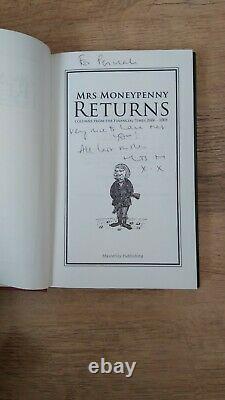 For
MRS MONEYPENNY
RETURNS
COLUMNS FROM THE FINANCIAL TIMES 2006 - 2008
Very nice to have met
you!
All best wishes
Mrs M
x - x
Mavericks Publishing